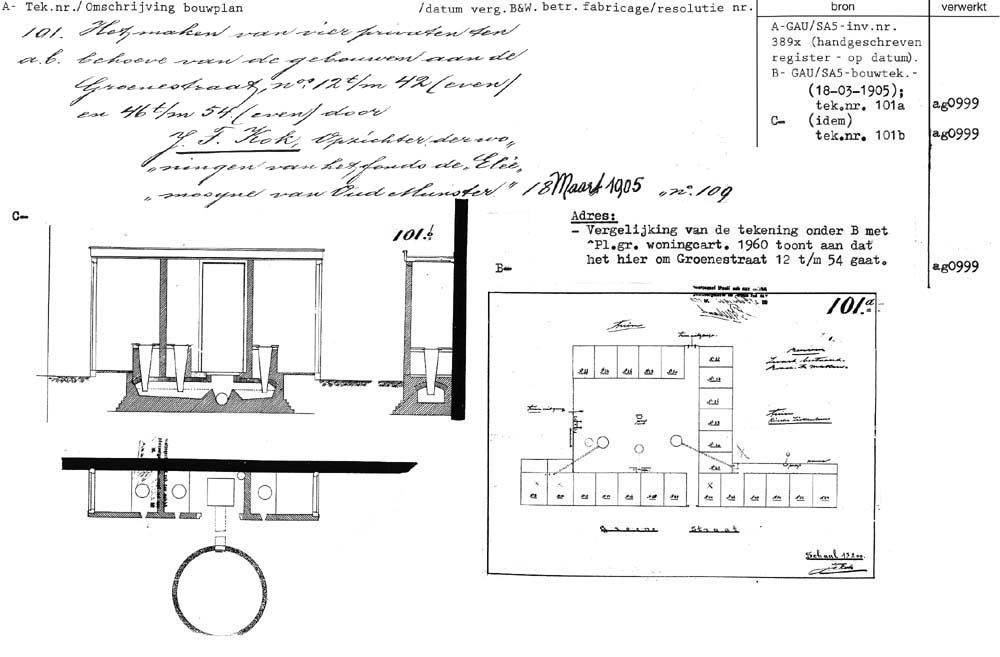 A- Tek.nr./Omschrijving bouwplan /datum verg.B&W. betr. fabricage/resolutie nr.
bron
verwerkt
101. Het maken van vier privaten ten
a.b. behoeve van de gebouwen aan de
Groenestraat, nos. 12 t/m 42 (even)
en 46 t/m 54 (even) door
J. F. Kok, Opzichter der wo-
„ningen van het fonds de „Elee„
„mosyne van Oud Munster." 18 Maart 1905 „no. 109
A-GAU/SA5-inv.nr.
389x (handgeschreven
register - op datum).
B- GAU/SA5-bouwtek.-
(18-03-1905);
tek.nr. 101a
ag0999
C- (idem)
tek.nr. 101b
ag0999
Adres:
- Vergelijking van de tekening onder B met
^Pl.gr. woningcart. 1960 toont aan dat
het hier om Groenestraat 12 t/m 54 gaat.
ag0999
C-
101.b
B-
101.a
Groene Straat
Schaal 1 à 200.